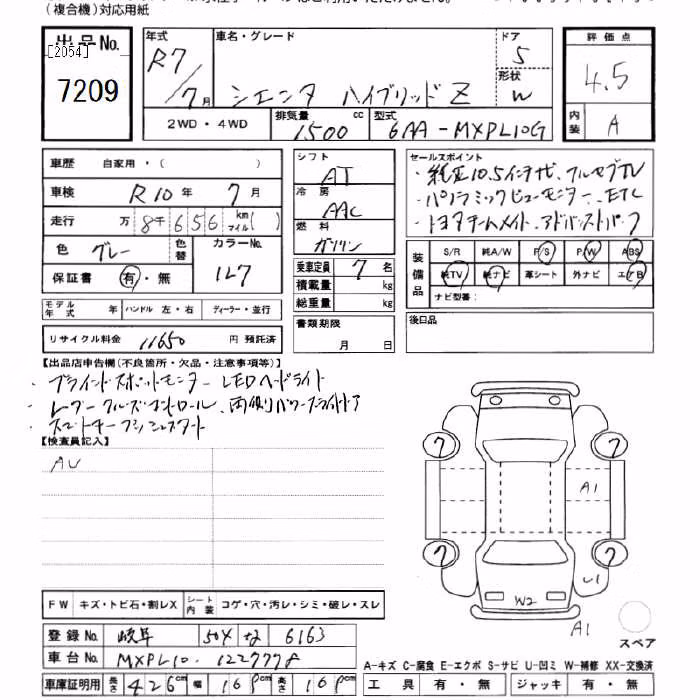 (複合機)対応用紙
出品No.
[2054]
7209
年式 R7/7月
車名・グレード シエンタ ハイブリッド Z
ドア 5
形状 W
評価点 4.5
内装 A
2WD・4WD
排気量 1500 cc
型式 6AA-MXPL10G
車歴 自家用・( )
車検 R10年 7月
走行 万 8千 656 km マイル( )
色 グレー
色替
カラーNo. 1L7
保証書 有・無
モデル年式 年 ハンドル 左・右 ディーラー・並行
リサイクル料金 11650 円 預託済
シフト AT
冷房 AAC
燃料 ガソリン
乗車定員 7 名
積載量 kg
総重量 kg
書類期限 月 日
セールスポイント
・純正10.5インチナビ、フルセグTV
・パノラミックビューモニター、ETC
・トヨタチームメイト、アドバンストパーク
装備品
S/R 純A/W P/S P/W ABS
純TV 純ナビ 革シート 外ナビ エアB
ナビ型番:
後日品
【出品店申告欄(不良箇所・欠品・注意事項等)】
・ブラインドスポットモニター LEDヘッドライト
・レーダークルーズコントロール、両側パワースライドドア
・スマートキー プッシュスタート
【検査員記入】
AU
7 7
A1
7 7
U1
W2
A1
スペア
FW キズ・トビ石・割レX シート内装 コゲ・穴・汚レ・シミ・破レ・スレ
登録No. 岐阜 504 な 6163
車台No. MXPL10-1227778
車庫証明用 長さ 426cm 幅 169cm 高さ 169cm
A-キズ C-腐食 E-エクボ S-サビ U-凹ミ W-補修 XX-交換済
工具 有・無 ジャッキ 有・無